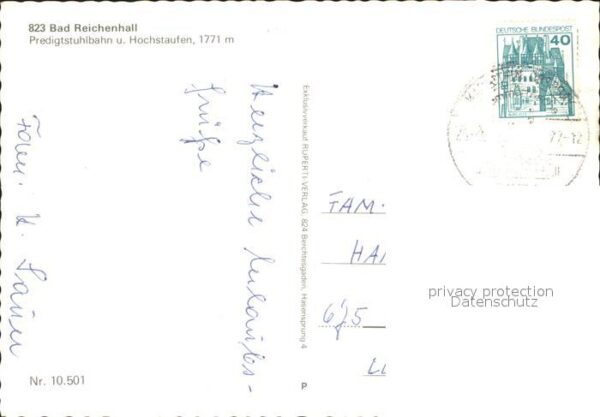 823 Bad Reichenhall
Predigtstuhlbahn u. Hochstaufen, 1771 m
Herzliche Urlaubs-
Grüße
Fam. K. Sauer
Nr. 10.501
Exklusivverkauf RUPERTI-VERLAG, 824 Berchtesgaden, Hasensprung 4
P
DEUTSCHE BUNDESPOST
40
77-12
FAM.
HA
675
privacy protection
Datenschutz